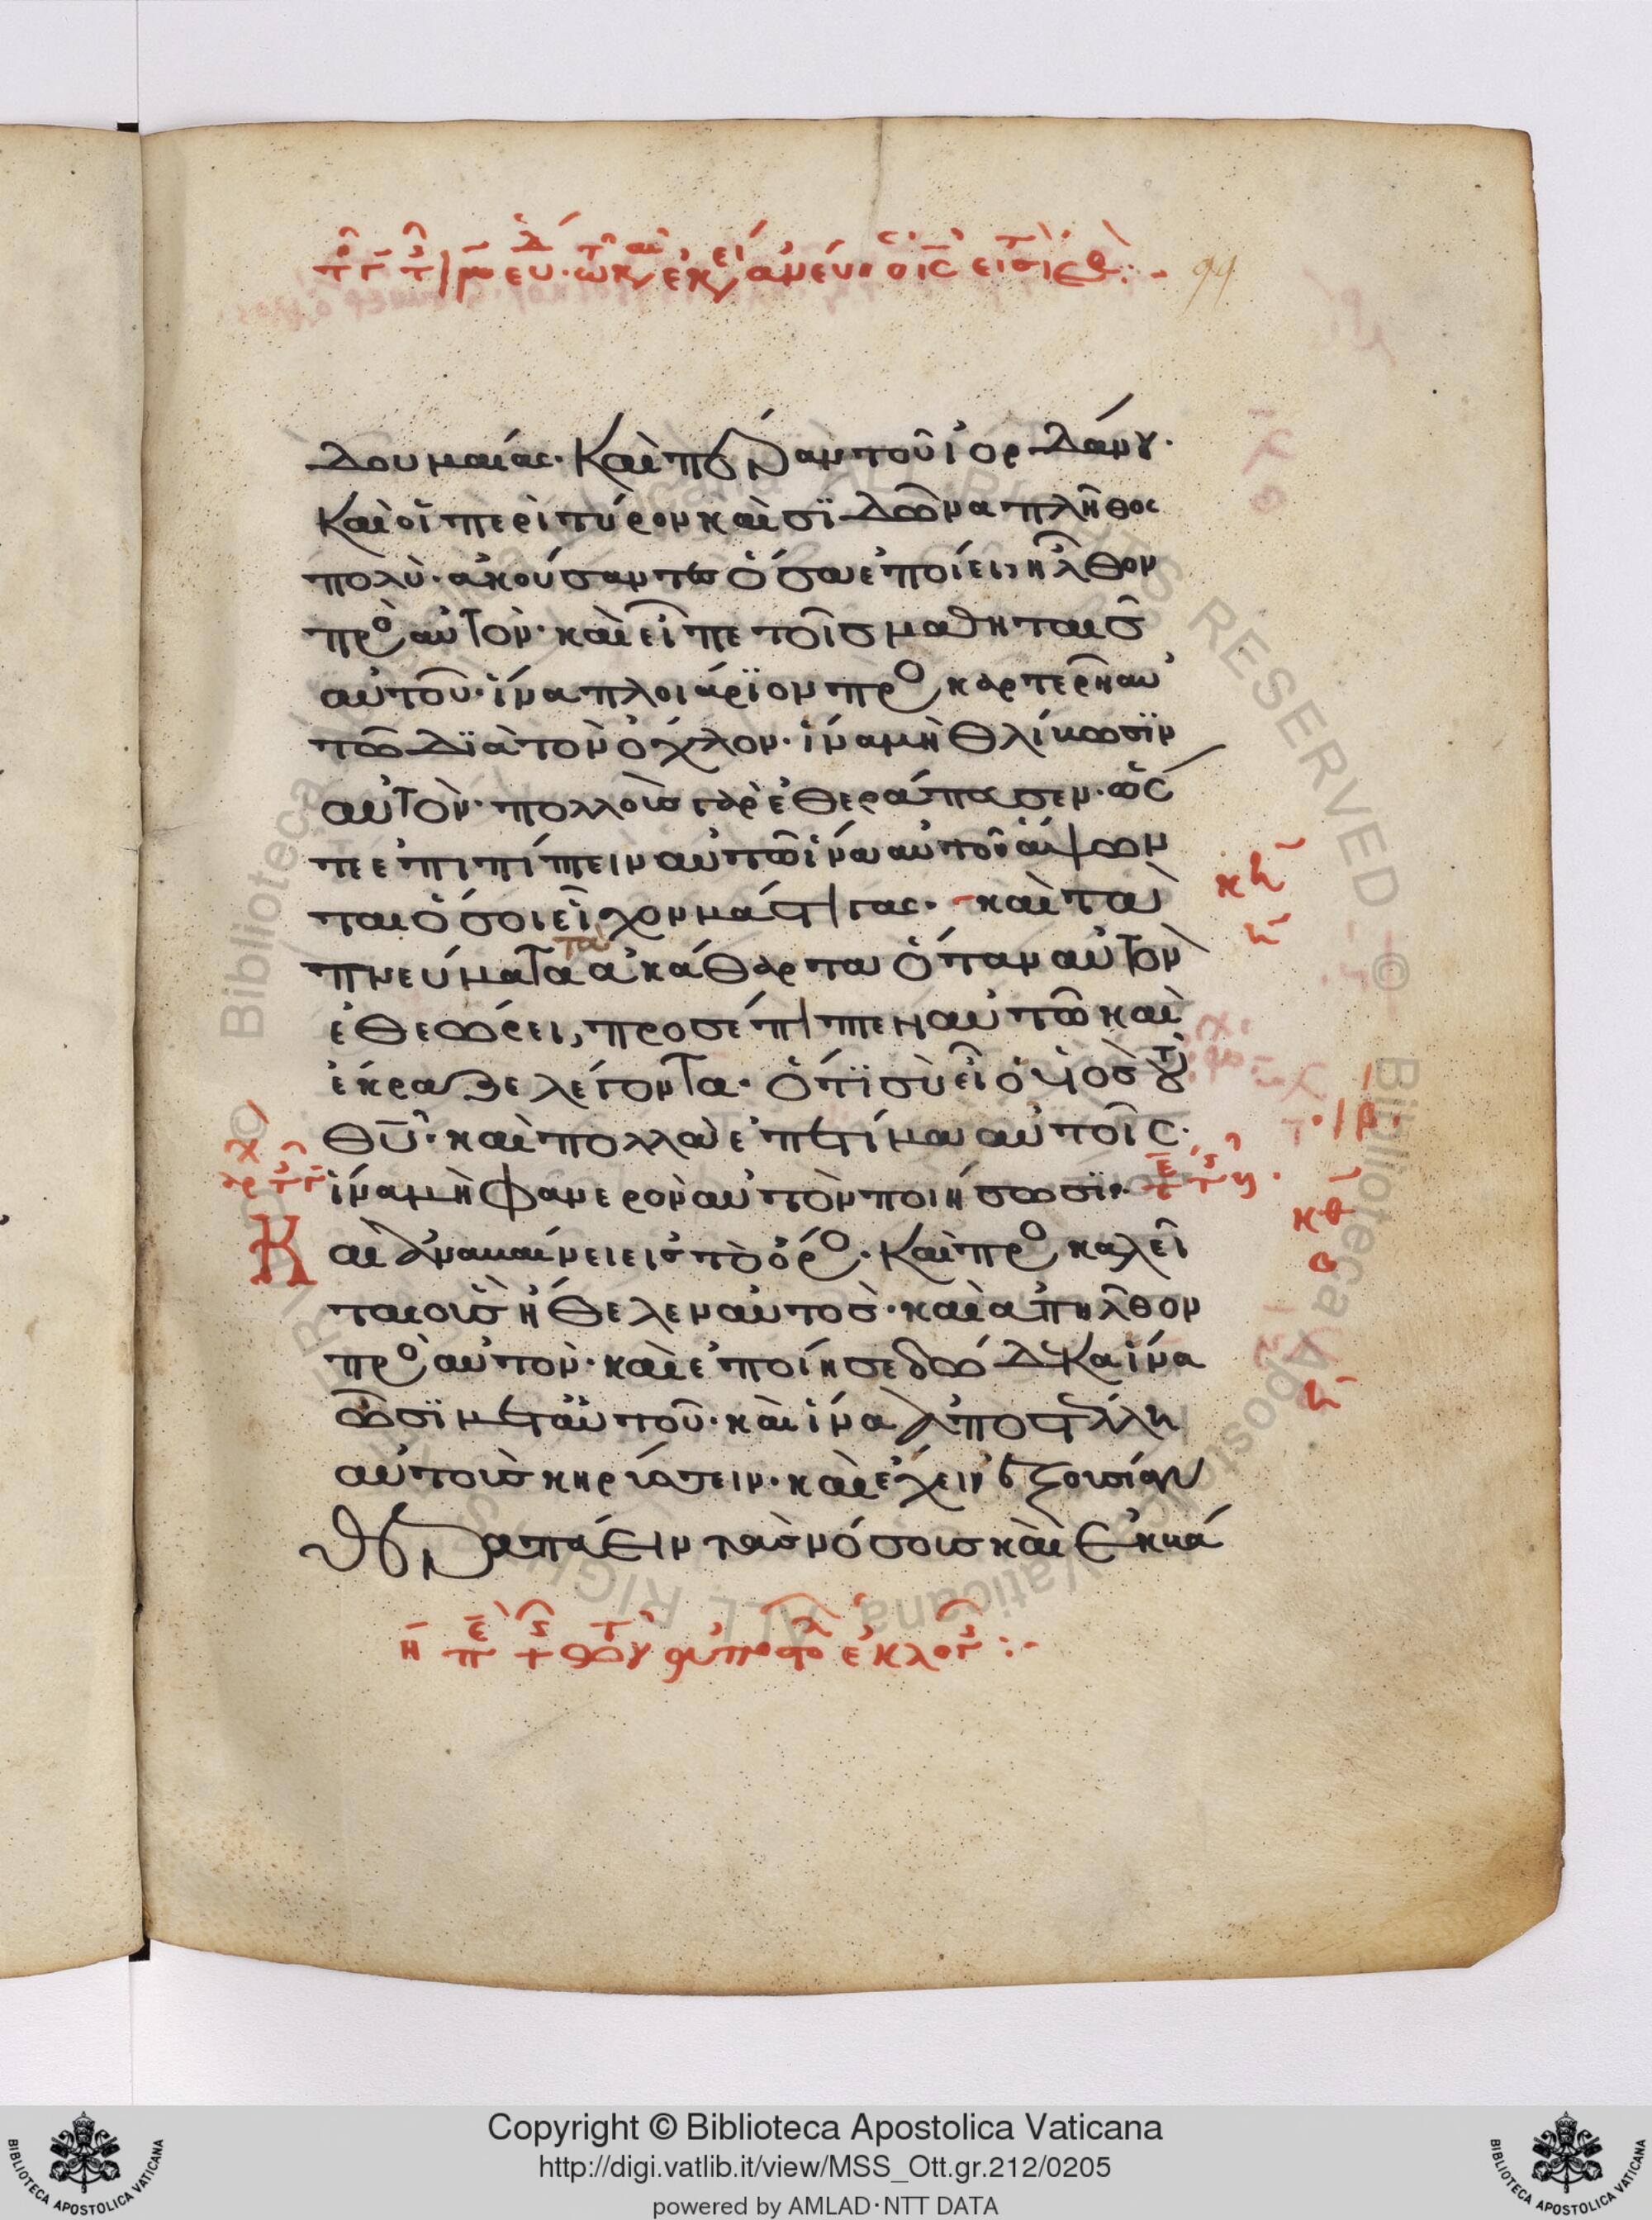 99
δουμαίας· Καὶ πέραν τοῦ ἰορδάνου·
Καὶ οἱ περὶ τύρον καὶ σϊδῶνα πλῆθος
πολὺ· ἀκούσαντες ὅσα ἐποίει, ἦλθον
πρὸς αὐτὸν· καὶ εἶπε τοῖς μαθηταῖς
αὐτοῦ· ἵνα πλοιάρϊον προσκαρτερῆ αὐ
τῶ δϊὰ τὸν ὄχλον· ἵνα μὴ θλίβωσϊν
αὐτὸν· πολλοὺς γὰρ ἐθεράπευσεν· ὥς
τε ἐπιπίπτειν αὐτῶ ἵνα αὐτοῦ ἅψων
ται ὅσοι εἶχον μάστιγας· καὶ τὰ
πνεύματα τὰ ἀκάθαρτα ὅταν αὐτὸν
ἐθεώρει, προσέπιπτεν αὐτῶ καὶ
ἔκραζε λέγοντα· ὅτϊ σὺ εἶ ὁ υἱὸς τοῦ
θῦ· καὶ πολλὰ ἐπετίμα αὐτοῖς·
ἵνα μὴ φανερὸν αὐτὸν ποιήσωσϊν·
Καὶ ἀναβαίνει εἰς τὸ ὄρος· Καὶ προσκαλεῖ
ται οὓς ἤθελεν αὐτὸς· καὶ ἀπῆλθον
πρὸς αὐτὸν· καὶ ἐποίησε δώδεκα ἵνα
ὦσϊ μετ' αὐτοῦ· καὶ ἵνα ἀποστέλλη
αὐτοὺς κηρύσσειν· καὶ ἔχειν ἐξουσίαν
θεραπεύειν τὰς νόσους καὶ ἐκβά
κη
η
κθ
θ
η
Copyright © Biblioteca Apostolica Vaticana
http://digi.vatlib.it/view/MSS_Ott.gr.212/0205
powered by AMLAD·NTT DATA
BIBLIOTECA APOSTOLICA VATICANA
BIBLIOTECA APOSTOLICA VATICANA